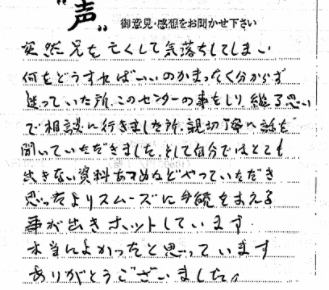 "声" 御意見・感想をお聞かせ下さい
突然兄を亡くして気落ちしてしまい
何をどうすればいいのかまったく分からず
迷っていた所、このセンターの事をしり、縋る思い
で相談に行きました所、親切丁寧に話を
聞いていただきました。そして自分ではとても
出きない資料あつめなどやっていただき
思ったよりスムーズに手続をまえる
事が出きホットしています
本当によかったと思っています
ありがとうございました。